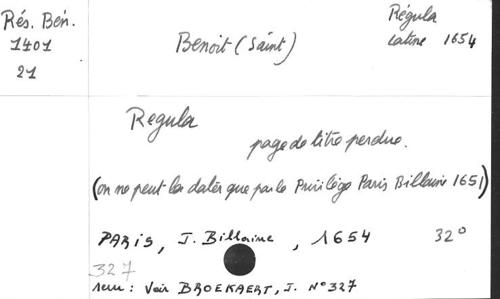 Rés. Bén.
1401
21
Benoit (Saint)
Régula
latine 1654
Regula
page de titre perdue.
(on ne peut la dater que par le Privilège Paris Billaine 1651)
PARIS, J. Billaine, 1654 32°
327
: Voir BROEKAERT, J. N° 327